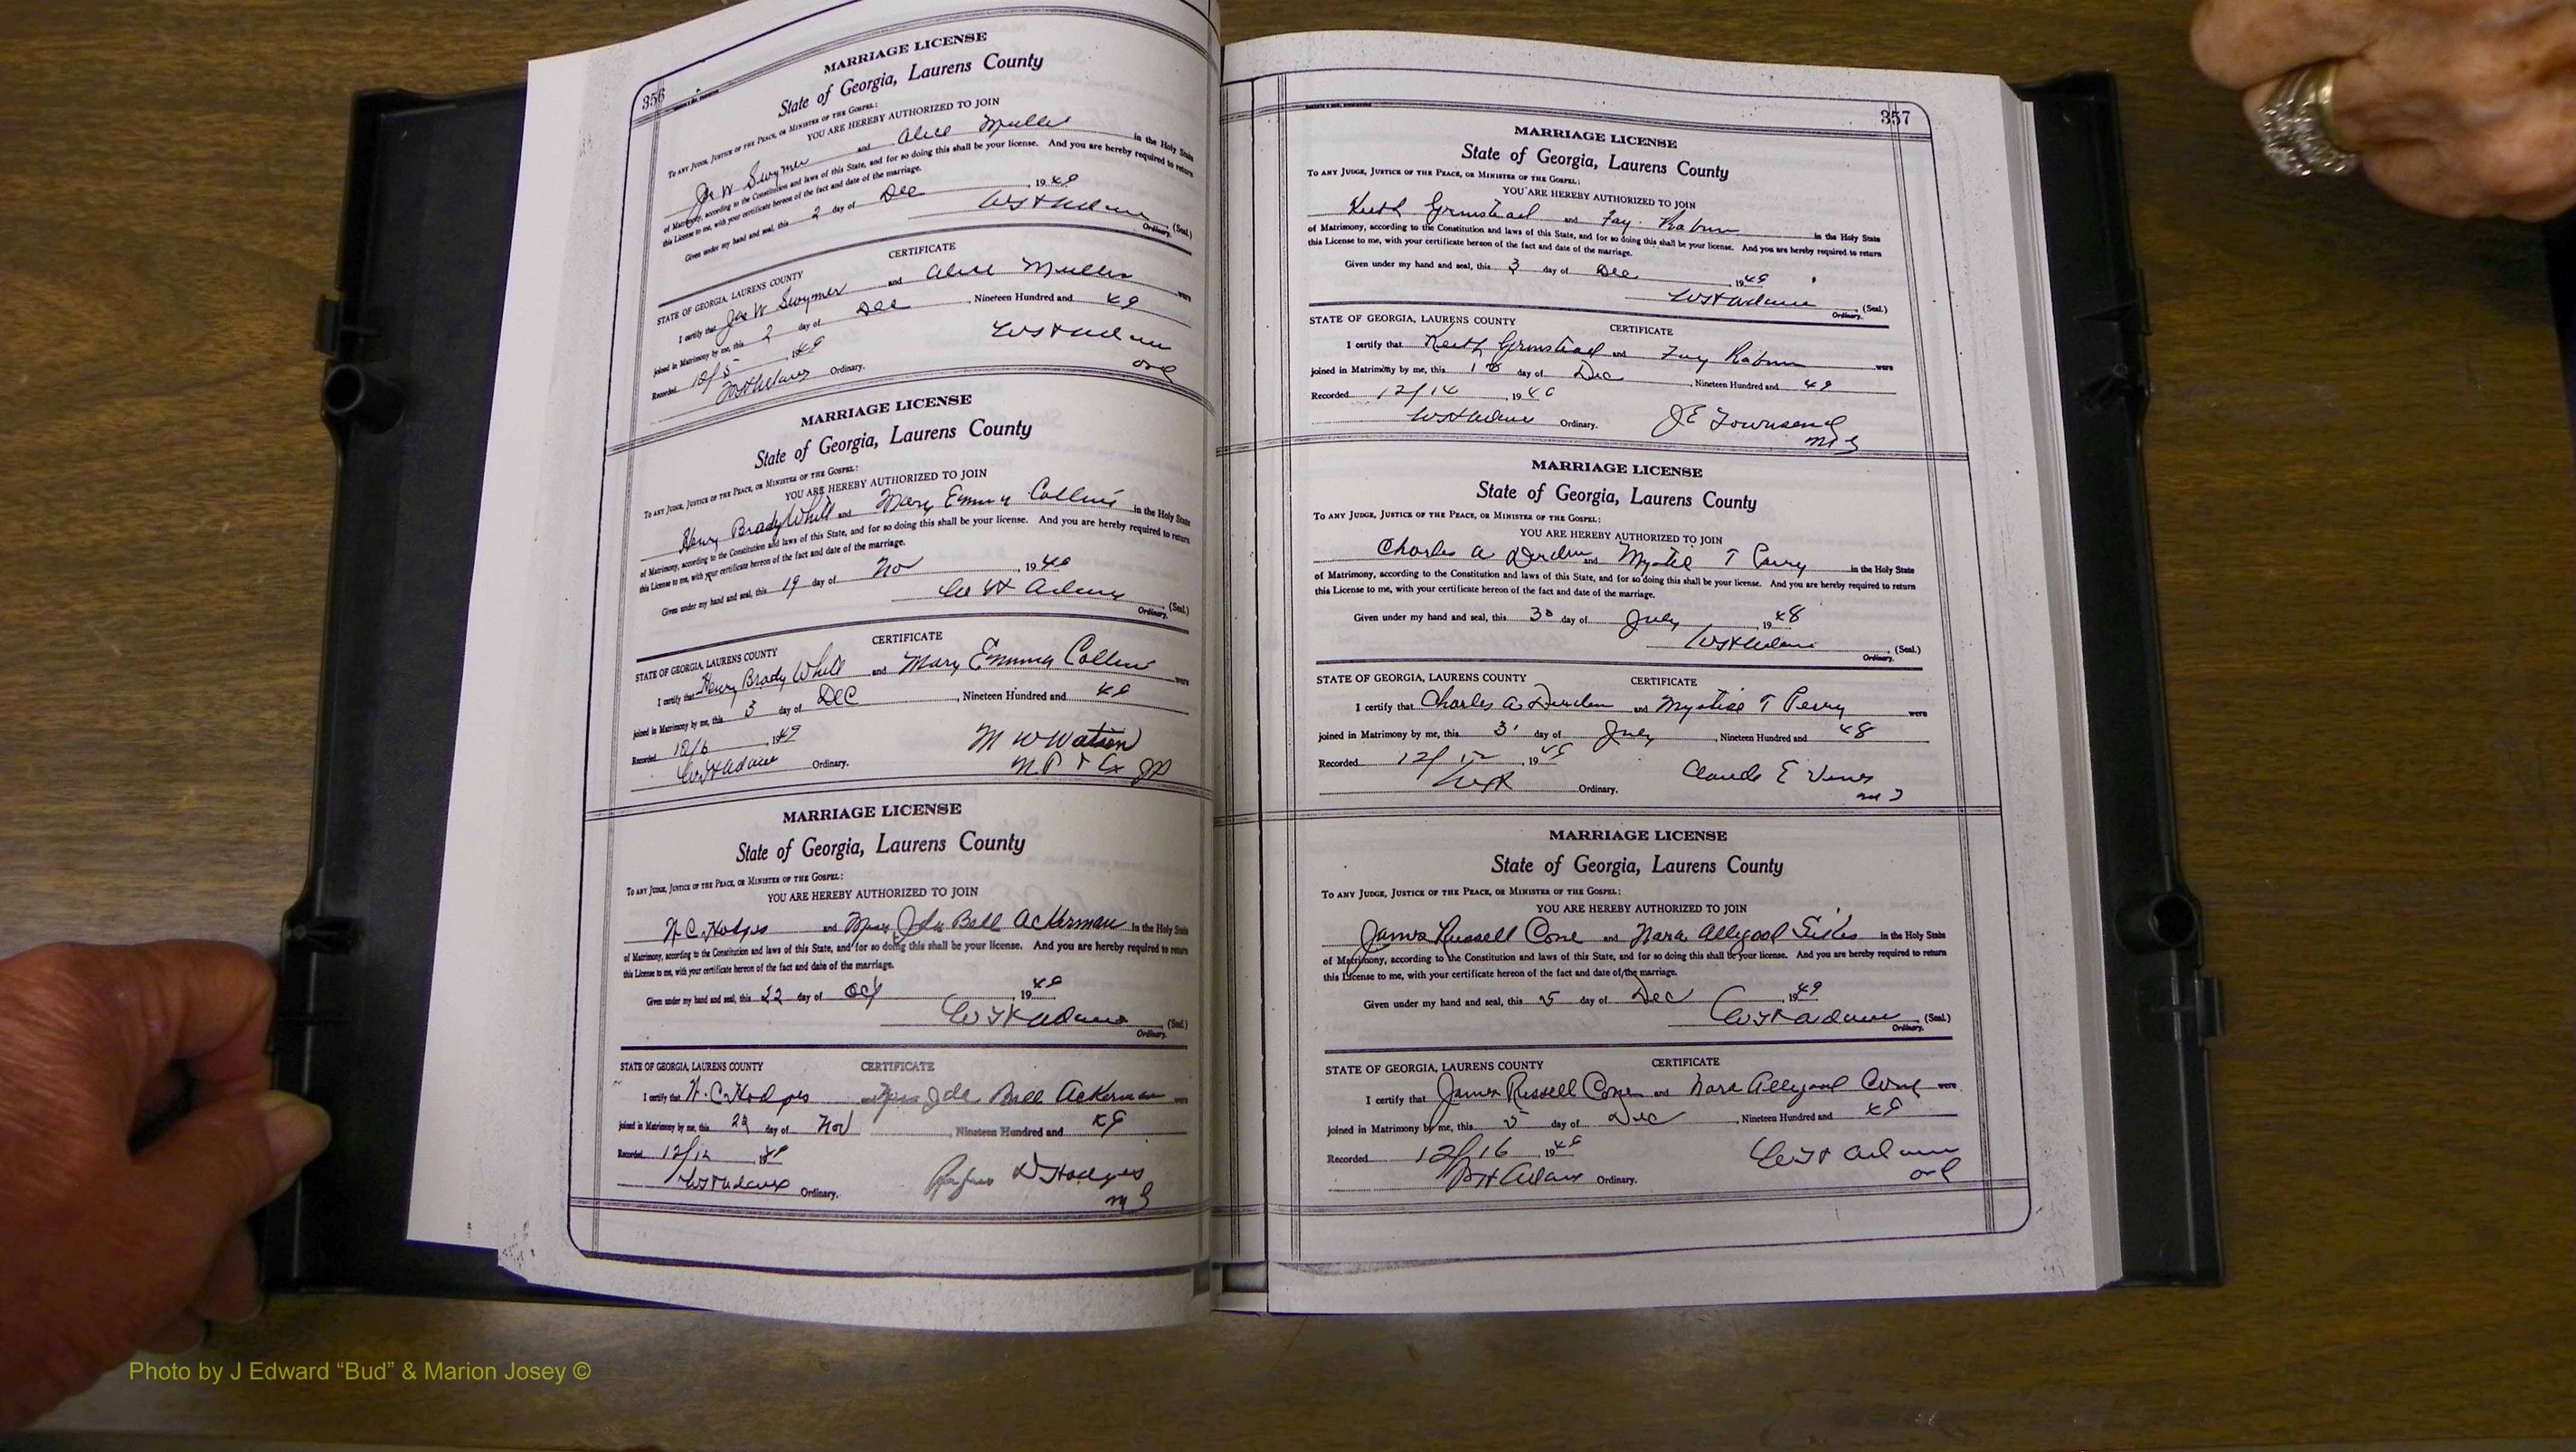 356
MARRIAGE LICENSE
State of Georgia, Laurens County
To any Judge, Justice of the Peace, or Minister of the Gospel:
YOU ARE HEREBY AUTHORIZED TO JOIN
W Swymer and Alice in the Holy State
of Matrimony, according to the Constitution and laws of this State, and for so doing this shall be your license. And you are hereby required to return
this License to me, with your certificate hereon of the fact and date of the marriage.
Given under my hand and seal, this 2 day of Dec , 1949
(Seal.)
Ordinary.
CERTIFICATE
STATE OF GEORGIA, LAURENS COUNTY
I certify that W Swymer and Alice were
joined in Matrimony by me, this 2 day of Dec , Nineteen Hundred and 49
Recorded 12/5 , 1949
Ordinary.
ord
MARRIAGE LICENSE
State of Georgia, Laurens County
To any Judge, Justice of the Peace, or Minister of the Gospel:
YOU ARE HEREBY AUTHORIZED TO JOIN
Henry Brady and Mary Emma Collins in the Holy State
of Matrimony, according to the Constitution and laws of this State, and for so doing this shall be your license. And you are hereby required to return
this License to me, with your certificate hereon of the fact and date of the marriage.
Given under my hand and seal, this 19 day of Nov , 1949
W H Adams (Seal.)
Ordinary.
CERTIFICATE
STATE OF GEORGIA, LAURENS COUNTY
I certify that Henry Brady and Mary Emma Collins were
joined in Matrimony by me, this 3 day of Dec , Nineteen Hundred and 49
Recorded 12/6 , 1949
Ordinary.
M W Watson
MARRIAGE LICENSE
State of Georgia, Laurens County
To any Judge, Justice of the Peace, or Minister of the Gospel:
YOU ARE HEREBY AUTHORIZED TO JOIN
C. Hodges and Miss Bell Ackerman in the Holy State
of Matrimony, according to the Constitution and laws of this State, and for so doing this shall be your license. And you are hereby required to return
this License to me, with your certificate hereon of the fact and date of the marriage.
Given under my hand and seal, this 22 day of Oct , 1949
(Seal.)
Ordinary.
STATE OF GEORGIA, LAURENS COUNTY CERTIFICATE
I certify that C. Hodges and Miss Bell Ackerman were
joined in Matrimony by me, this day of Nov , Nineteen Hundred and 49
Recorded 12/12 1949
Ordinary.
Hodges
M G
357
MARRIAGE LICENSE
State of Georgia, Laurens County
To any Judge, Justice of the Peace, or Minister of the Gospel:
YOU ARE HEREBY AUTHORIZED TO JOIN
Keith Grinstead and Fay Rabun in the Holy State
of Matrimony, according to the Constitution and laws of this State, and for so doing this shall be your license. And you are hereby required to return
this License to me, with your certificate hereon of the fact and date of the marriage.
Given under my hand and seal, this 3 day of Dec , 1949
(Seal.)
Ordinary.
STATE OF GEORGIA, LAURENS COUNTY CERTIFICATE
I certify that Keith Grinstead and Fay Rabun were
joined in Matrimony by me, this day of Dec , Nineteen Hundred and 49
Recorded 12/14 , 1949
Ordinary.
J E Townsend
M G
MARRIAGE LICENSE
State of Georgia, Laurens County
To any Judge, Justice of the Peace, or Minister of the Gospel:
YOU ARE HEREBY AUTHORIZED TO JOIN
Charles A Durden and T Perry in the Holy State
of Matrimony, according to the Constitution and laws of this State, and for so doing this shall be your license. And you are hereby required to return
this License to me, with your certificate hereon of the fact and date of the marriage.
Given under my hand and seal, this 30 day of July , 1948
(Seal.)
Ordinary.
STATE OF GEORGIA, LAURENS COUNTY CERTIFICATE
I certify that Charles A Durden and T Perry were
joined in Matrimony by me, this 31 day of July , Nineteen Hundred and 48
Recorded 12/12 , 1949
Ordinary.
Claude E Vines
MARRIAGE LICENSE
State of Georgia, Laurens County
To any Judge, Justice of the Peace, or Minister of the Gospel:
YOU ARE HEREBY AUTHORIZED TO JOIN
James Russell Cone and Nara Allgood Sikes in the Holy State
of Matrimony, according to the Constitution and laws of this State, and for so doing this shall be your license. And you are hereby required to return
this License to me, with your certificate hereon of the fact and date of the marriage.
Given under my hand and seal, this 5 day of Dec , 1949
(Seal.)
Ordinary.
STATE OF GEORGIA, LAURENS COUNTY CERTIFICATE
I certify that James Russell Cone and Nara Allgood were
joined in Matrimony by me, this 5 day of Dec , Nineteen Hundred and 49
Recorded 12/16 1949
Ordinary.
ord
Photo by J Edward “Bud” & Marion Josey ©